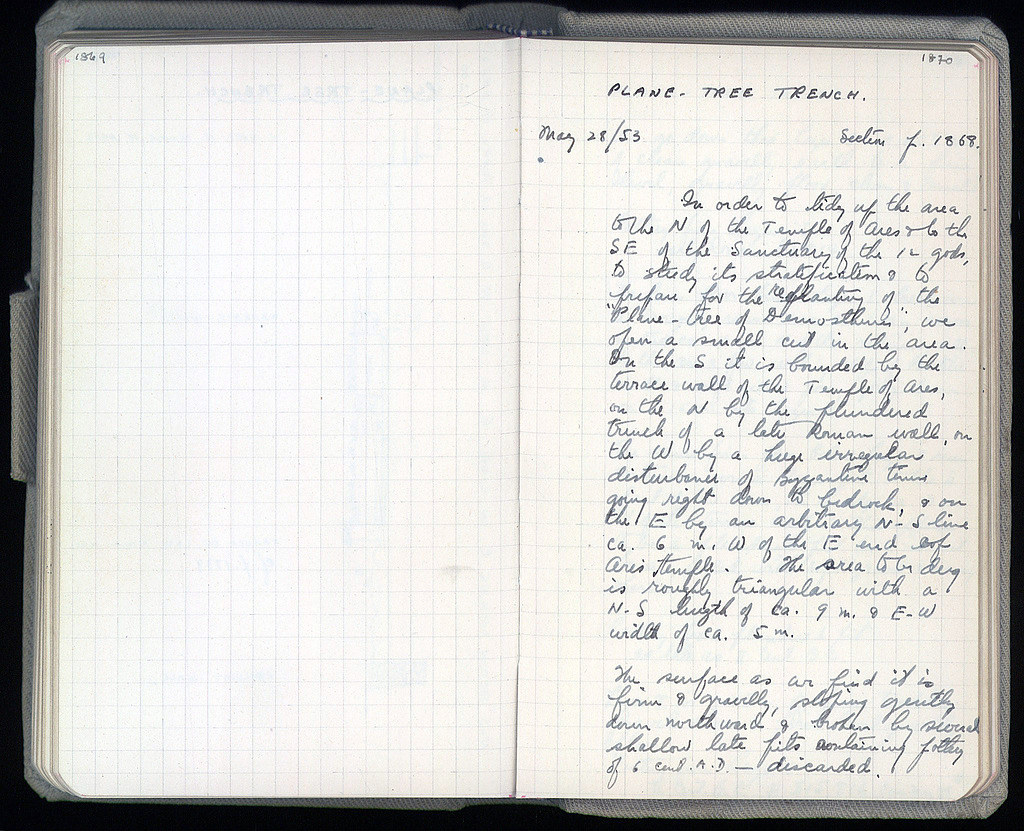 1869
1870
PLANE-TREE TRENCH.
May 28/53 Section p. 1868.
In order to tidy up the area
to the N of the Temple of Ares & to the
SE of the Sanctuary of the 12 gods,
to study its stratification & to
prepare for the replanting of the
"Plane-tree of Demosthenes", we
open a small cut in the area.
On the S it is bounded by the
terrace wall of the Temple of Ares,
on the N by the plundered
trench of a late Roman wall, on
the W by a huge irregular
disturbance of Byzantine times
going right down to bedrock, & on
the E by an arbitrary N-S line
ca. 6 m. W of the E end of
Ares temple. The area to be dug
is roughly triangular with a
N-S length of ca. 9 m. & E-W
width of ca. 5 m.
The surface as we find it is
firm & gravelly, sloping gently
down northward & broken by several
shallow late pits containing pottery
of 6 cent. A.D. — discarded.